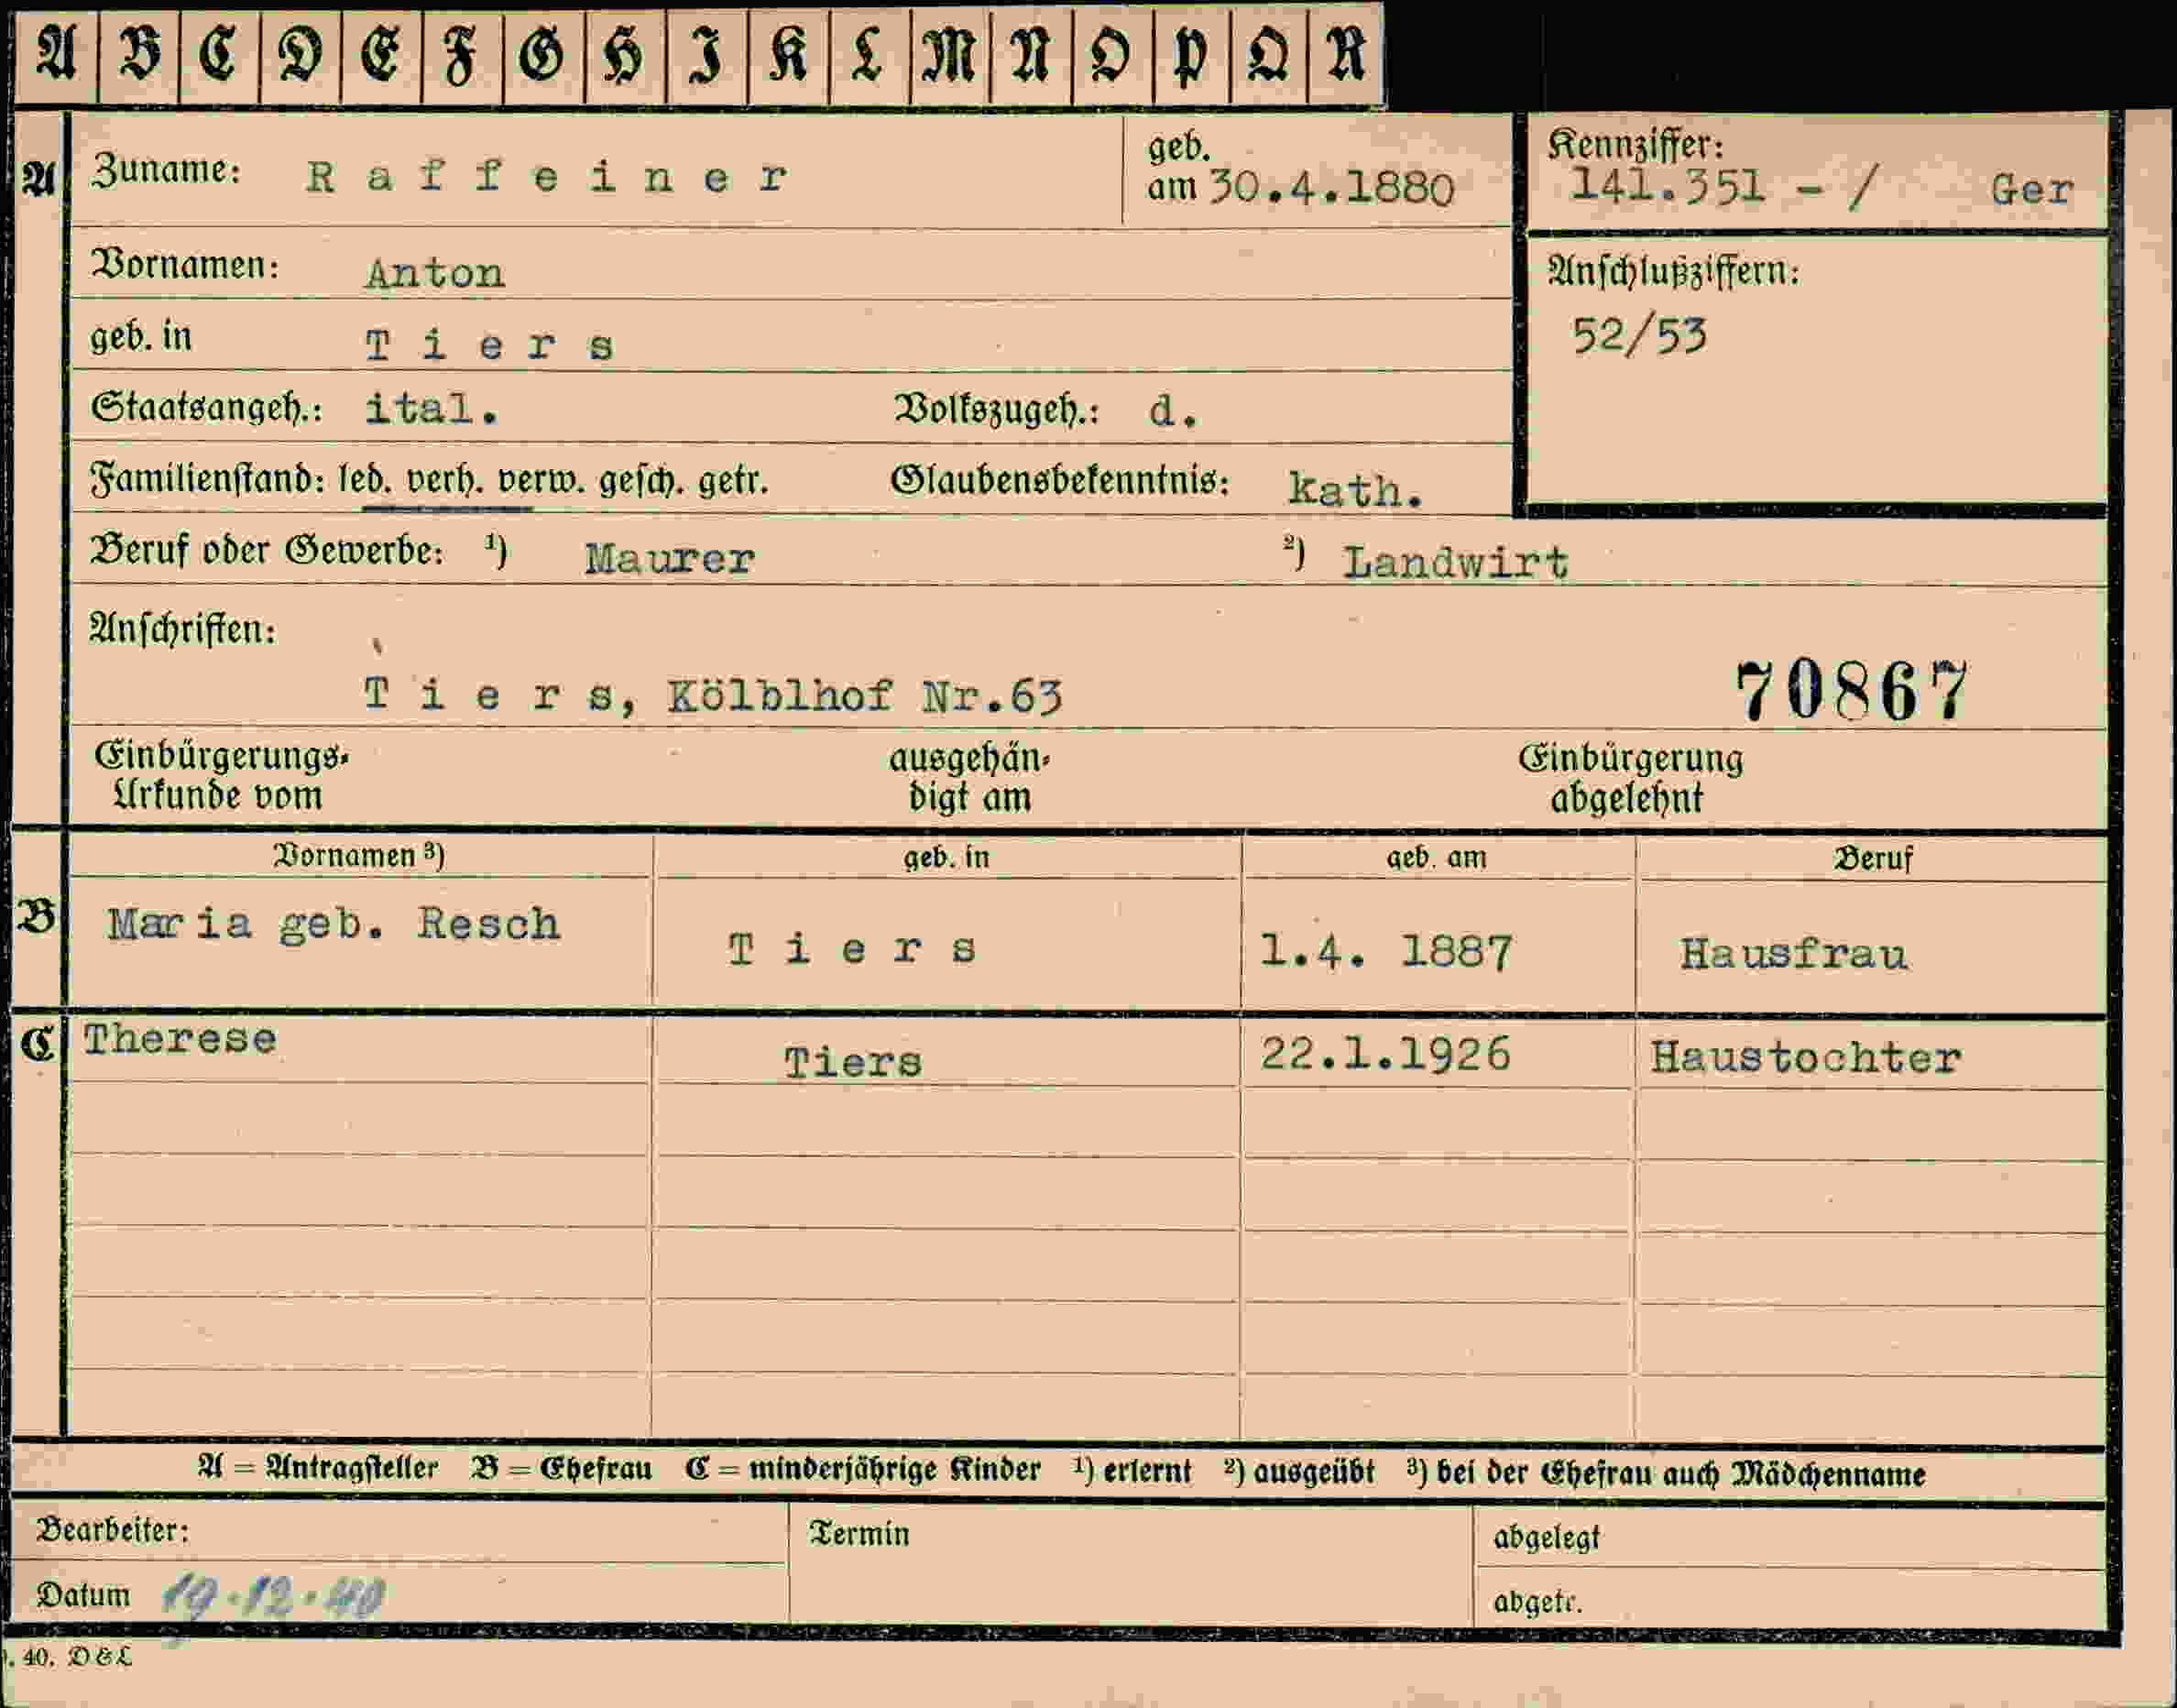 A B C D E F G H I K L M N O P Q R
A Zuname: Raffeiner geb. am 30.4.1880 Kennziffer: 141.351 - / Ger
Vornamen: Anton Anschlußziffern:
geb. in Tiers 52/53
Staatsangeh.: ital. Volkszugeh.: d.
Familienstand: led. verh. verw. gesch. getr. Glaubensbekenntnis: kath.
Beruf oder Gewerbe: ¹) Maurer ²) Landwirt
Anschriften:
Tiers, Kölblhof Nr.63 70867
Einbürgerungs- ausgehän- Einbürgerung
Urkunde vom digt am abgelehnt
Vornamen ³) geb. in geb. am Beruf
B Maria geb. Resch Tiers 1.4. 1887 Hausfrau
C Therese Tiers 22.1.1926 Haustochter
A = Antragsteller B = Ehefrau C = minderjährige Kinder ¹) erlernt ²) ausgeübt ³) bei der Ehefrau auch Mädchenname
Bearbeiter: Termin abgelegt
Datum 19.12.40 abgetr.
. 40. D & L